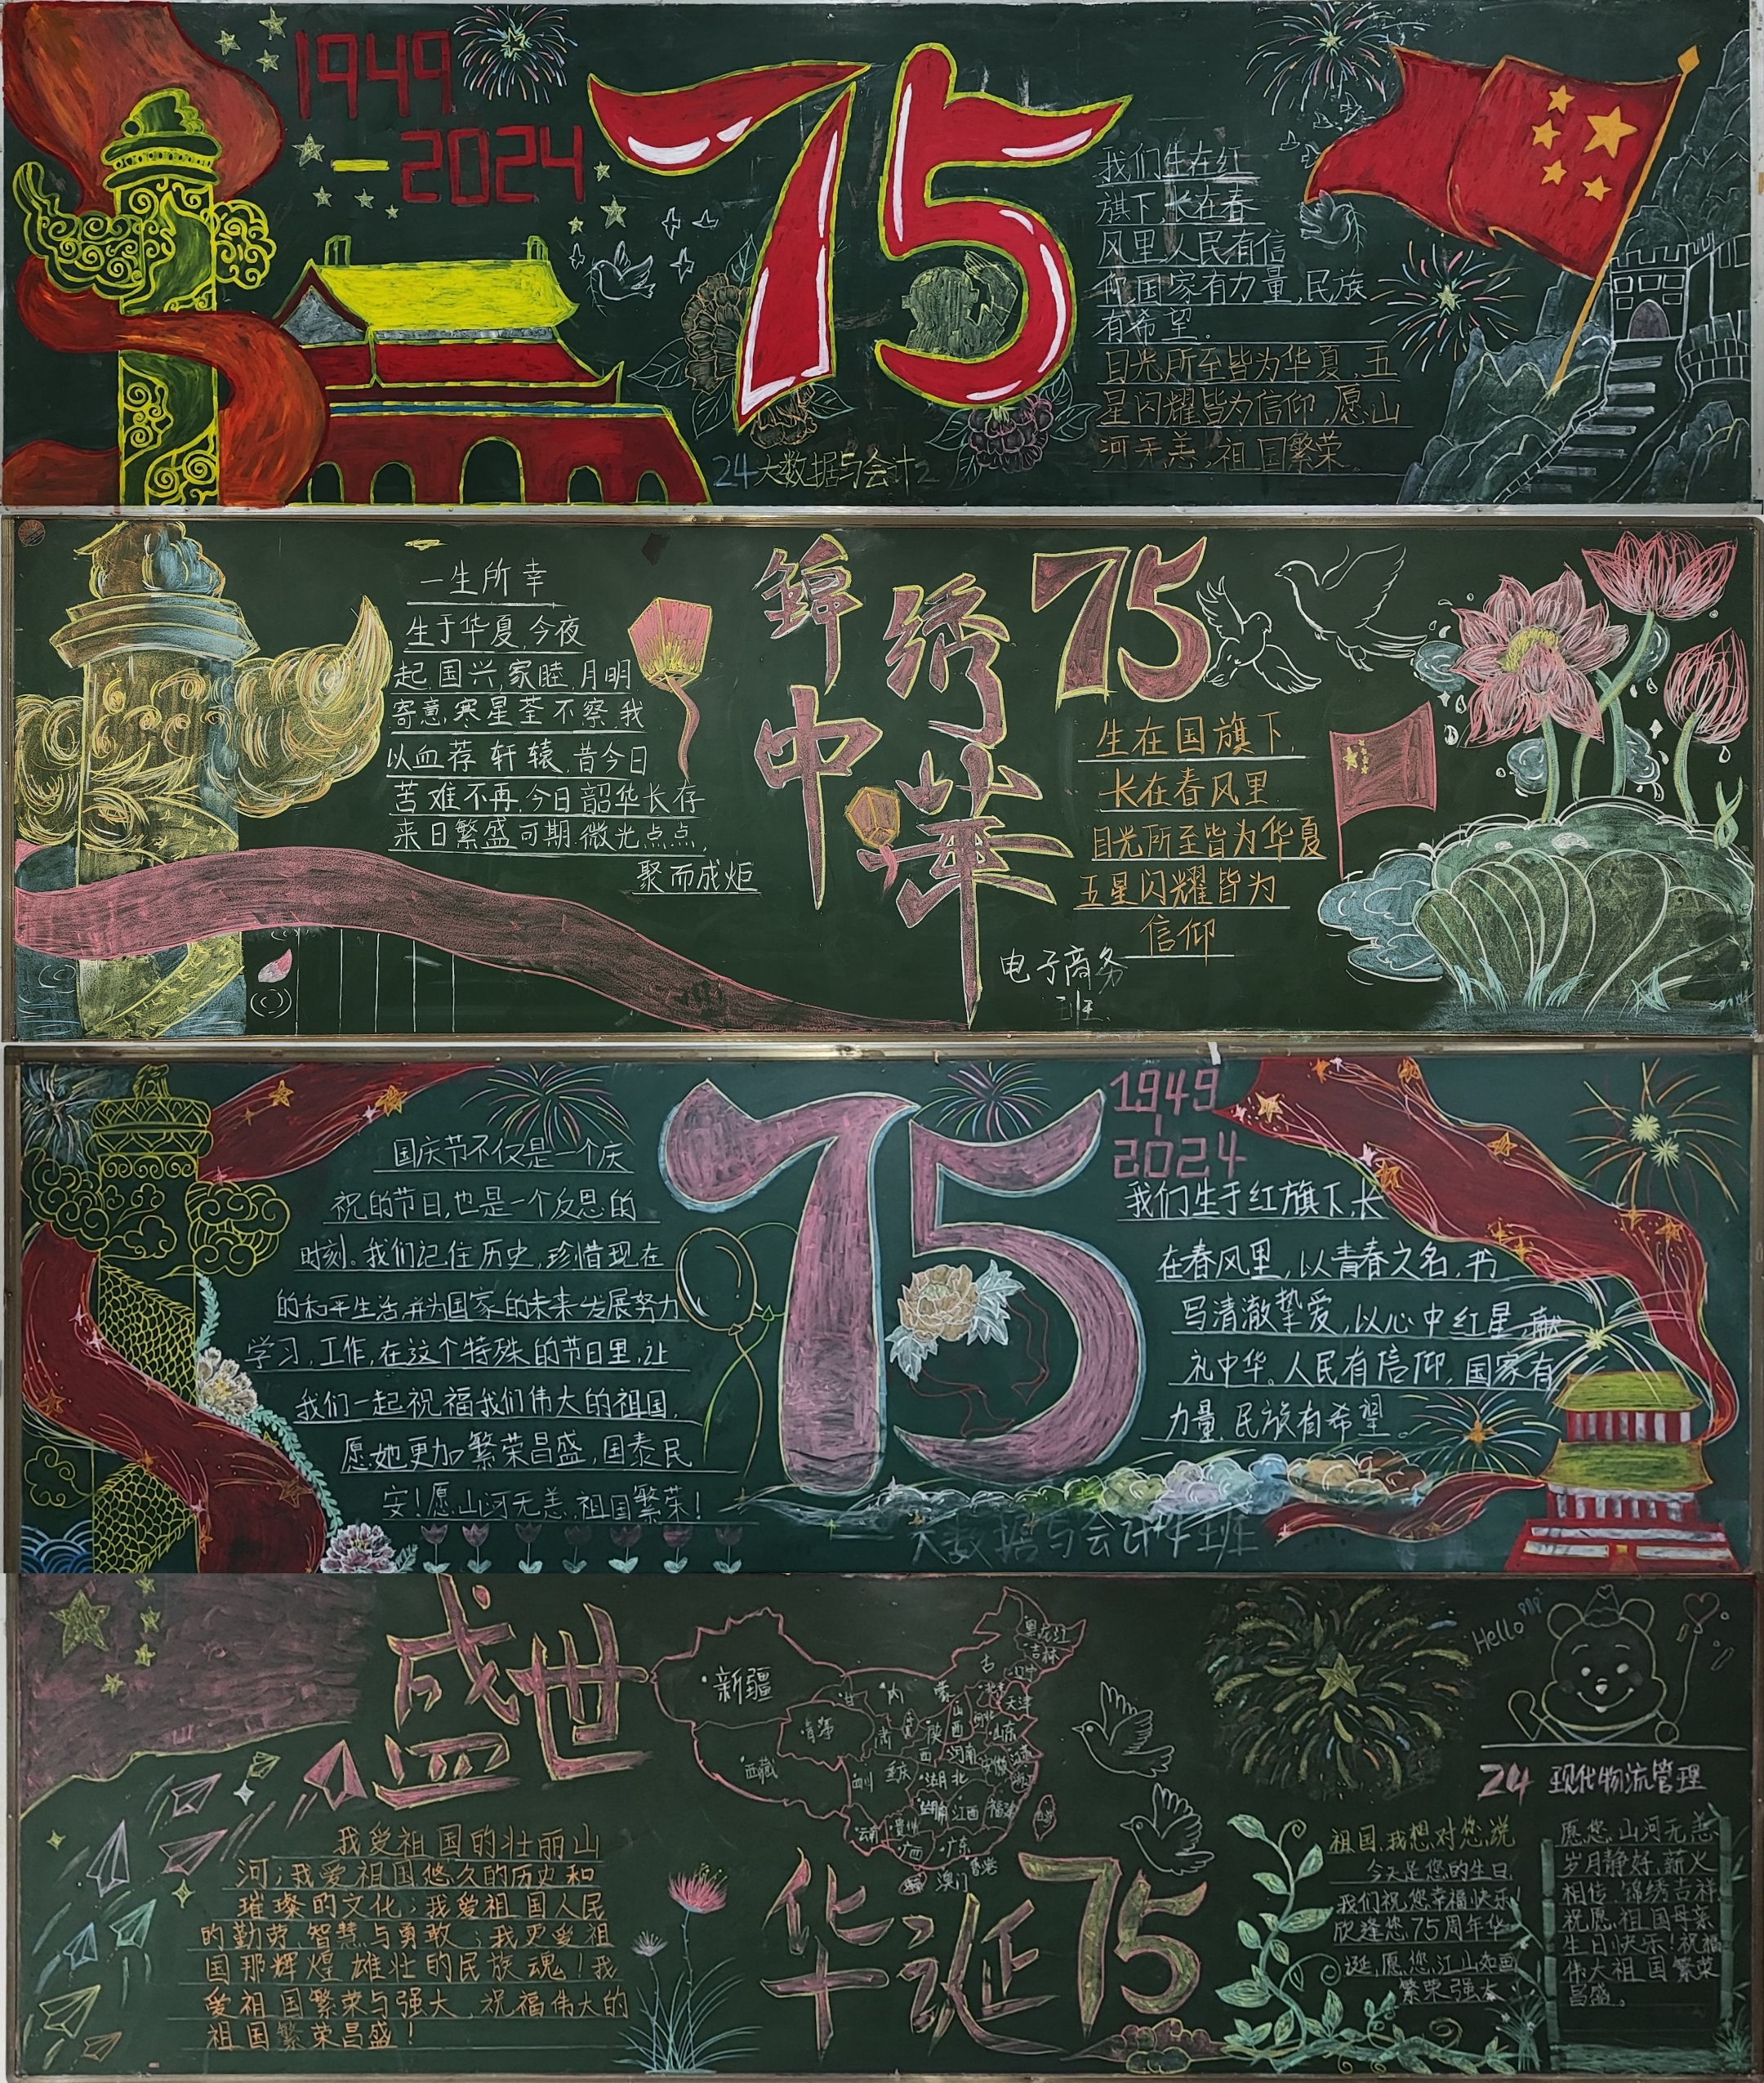 1949
-2024
75
我们生在红
旗下,长在春
风里人民有信
仰,国家有力量,民族
有希望。
目光所至皆为华夏,五
星闪耀皆为信仰,愿山
河无恙,祖国繁荣。
24大数据与会计2
一生所幸
生于华夏,今夜
起,国兴,家睦,月明
寄意,寒星荃不察,我
以血荐轩辕,昔今日
苦难不再,今日韶华长存
来日繁盛可期,微光点点,
聚而成炬
锦绣
中华
75
生在国旗下,
长在春风里
目光所至皆为华夏
五星闪耀皆为
信仰
电子商务
班
国庆节不仅是一个庆
祝的节日,也是一个反思的
时刻。我们记住历史,珍惜现在
的和平生活,并为国家的未来发展努力
学习,工作,在这个特殊的节日里,让
我们一起祝福我们伟大的祖国,
愿她更加繁荣昌盛,国泰民
安!愿山河无恙,祖国繁荣!
75
1949
-
2024
我们生于红旗下,长
在春风里,以青春之名,书
写清澈挚爱,以心中红星,献
礼中华。人民有信仰,国家有
力量,民族有希望。
大数据与会计牛班
盛世
华诞75
我爱祖国的壮丽山
河;我爱祖国悠久的历史和
璀璨的文化;我爱祖国人民
的勤劳,智慧与勇敢;我更爱祖
国那辉煌雄壮的民族魂!我
爱祖国繁荣与强大,祝福伟大的
祖国繁荣昌盛!
黑龙江
吉林
辽宁
新疆
内蒙古
甘肃
北京
天津
河北
山西
山东
青海
陕西
河南
安徽
江苏
西藏
四川
重庆
湖北
湖南
江西
福建
云南
贵州
广西
广东
香港
澳门
Hello
24 现代物流管理
祖国,我想对您说
今天是您的生日,
我们祝您幸福快乐!
欣逢您75周年华
诞,愿您,江山如画
繁荣强大
愿您,山河无恙
岁月静好,薪火
相传,锦绣吉祥
祝愿,祖国母亲
生日快乐!祝福
伟大祖国繁荣
昌盛。